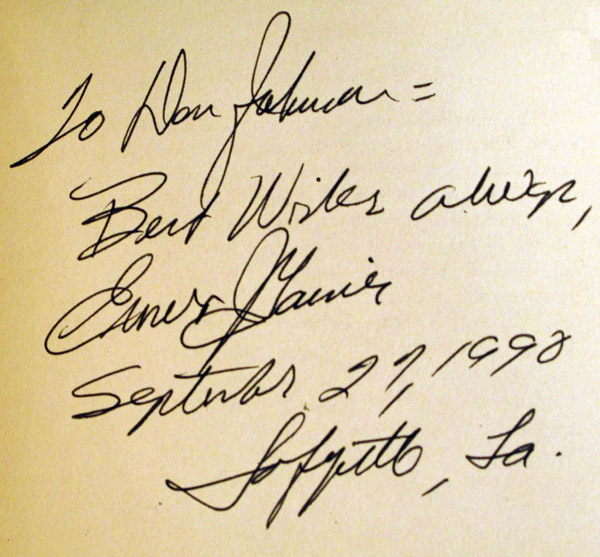 To Don Johnson =
Best Wishes always,
Ernest J Gaines
September 27, 1998
Lafayette, La.